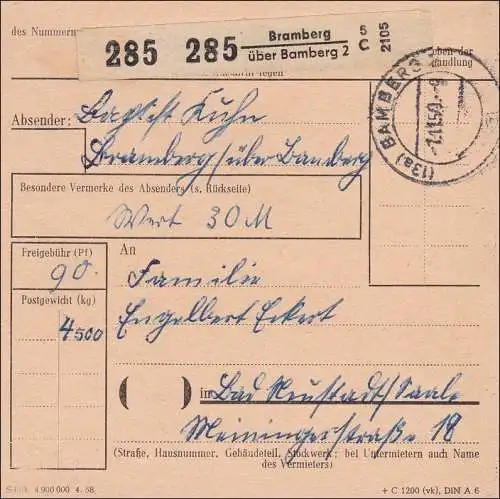 des Nummern
285 285 Bramberg
über Bamberg 2
5
C
2105
(13a) BAMBERG
Absender: Kuhn
Bramberg / über Bamberg
Besondere Vermerke des Absenders (s. Rückseite)
Wert 30 M
Freigebühr (Pf)
90.
Postgewicht (kg)
4500
An
Familie
Engelbert Eckert
( ) in Bad Neustadt/Saale
Meiningerstraße 18
(Straße, Hausnummer, Gebäudeteil, Stockwerk; bei Untermietern auch Name
des Vermieters)
4 900 000 4. 58.
+ C 1200 (vk), DIN A 6